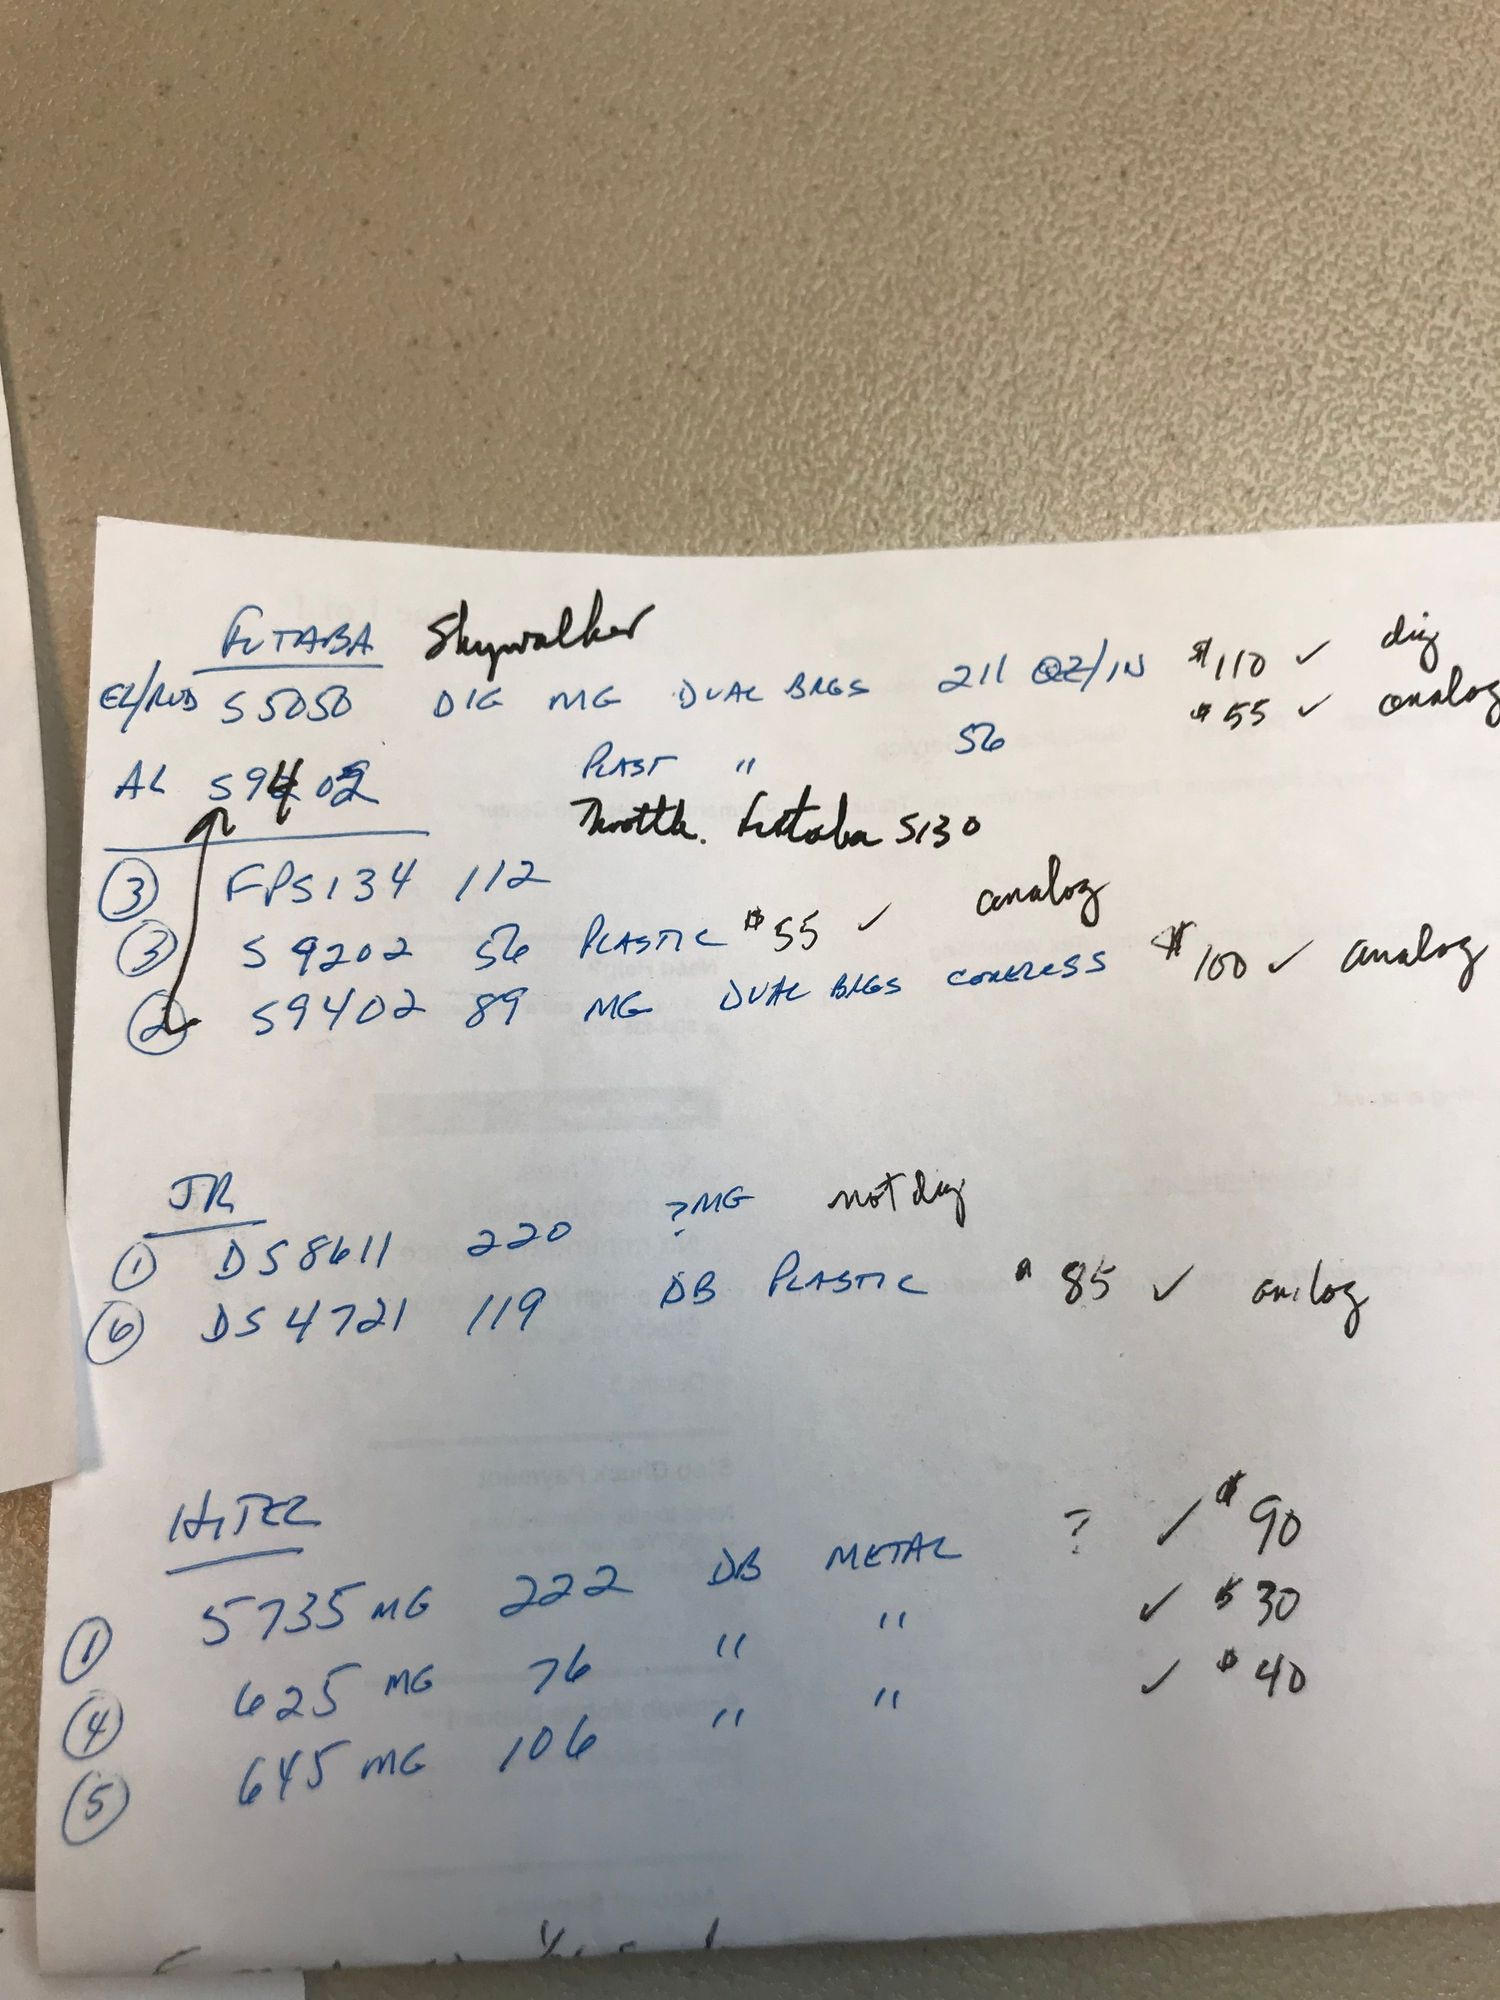 FUTABA Skywalker
EL/RUD S5050 DIG MG DUAL BRGS 211 OZ/IN $110 ✓ dig
AL S9402 PLAST " 56 $55 ✓ analog
Throttle. Futaba S130
③ FPS134 112
③ S9202 56 PLASTIC $55 ✓ analog
② S9402 89 MG DUAL BRGS CORELESS $100 ✓ analog
JR
① DS8611 220 ?MG not dig
⑥ DS4721 119 DB PLASTIC $85 ✓ analog
HITEC
① 5735MG 222 DB METAL ? ✓ $90
④ 625 MG 76 " " ✓ $30
⑤ 645 MG 106 " " ✓ $40